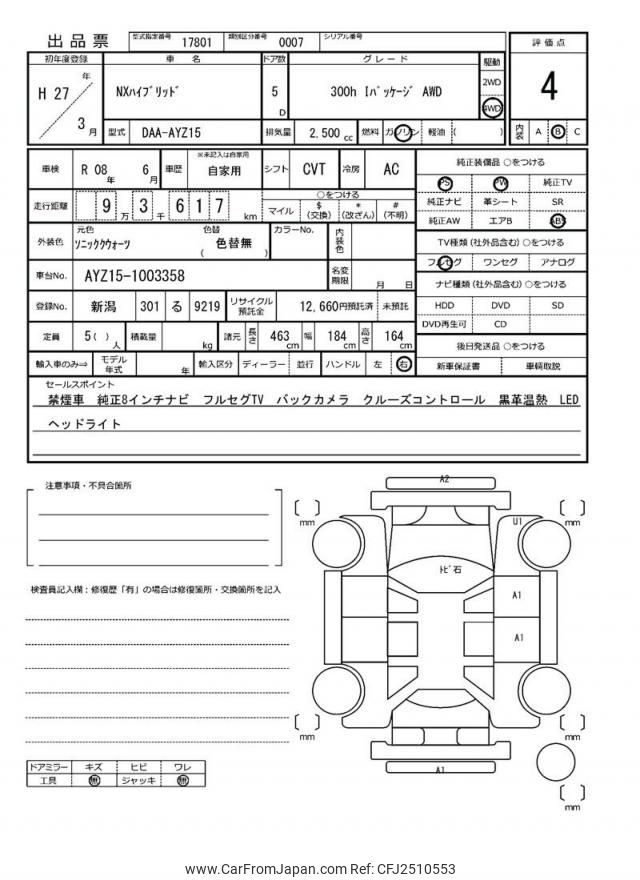 出品票 型式指定番号 17801 類別区分番号 0007 シリアル番号
初年度登録 車 名 ドア数 グレード 駆動 評価点
H 27 年 3 月 NXﾊｲﾌﾞﾘｯﾄﾞ 5 D 300h Iﾊﾟｯｹｰｼﾞ AWD 2WD 4WD 4
型式 DAA-AYZ15 排気量 2,500 cc 燃料 ガソリン 軽油 ( ) 内装 A B C
車検 R 08 年 6 月 車歴 ※未記入は自家用 自家用 シフト CVT 冷房 AC
純正装備品 ○をつける
PS PW 純正TV
純正ナビ 革シート SR
純正AW エアB ABS
走行距離 9 万 3 千 6 1 7 km
○をつける
マイル $ (交換) * (改ざん) # (不明)
外装色 元色 ｿﾆｯｸｳｫｰﾂ 色替 ( 色替無 ) カラーNo. 内装色
TV種類 (社外品含む) ○をつける
フルセグ ワンセグ アナログ
車台No. AYZ15-1003358 名変期限 月 日
ナビ種類 (社外品含む) ○をつける
HDD DVD SD
DVD再生可 CD
登録No. 新潟 301 る 9219 リサイクル預託金 12,660円預託済 未預託
定員 5 ( ) 人 積載量 kg 諸元 長さ 463 cm 幅 184 cm 高さ 164 cm
後日発送品 ○をつける
新車保証書 車輌取説
輸入車のみ⇒ モデル年式 年 輸入区分 ディーラー 並行 ハンドル 左 右
セールスポイント
禁煙車 純正8インチナビ フルセグTV バックカメラ クルーズコントロール 黒革温熱 LED
ヘッドライト
注意事項・不具合箇所
検査員記入欄：修復歴「有」の場合は修復箇所・交換箇所を記入
A2
mm mm
U1
ﾄﾋﾞ石
A1
A1
mm mm
A1
mm
ドアミラー キズ ヒビ ワレ
工具 無 ジャッキ 無
www.CarFromJapan.com Ref: CFJ2510553